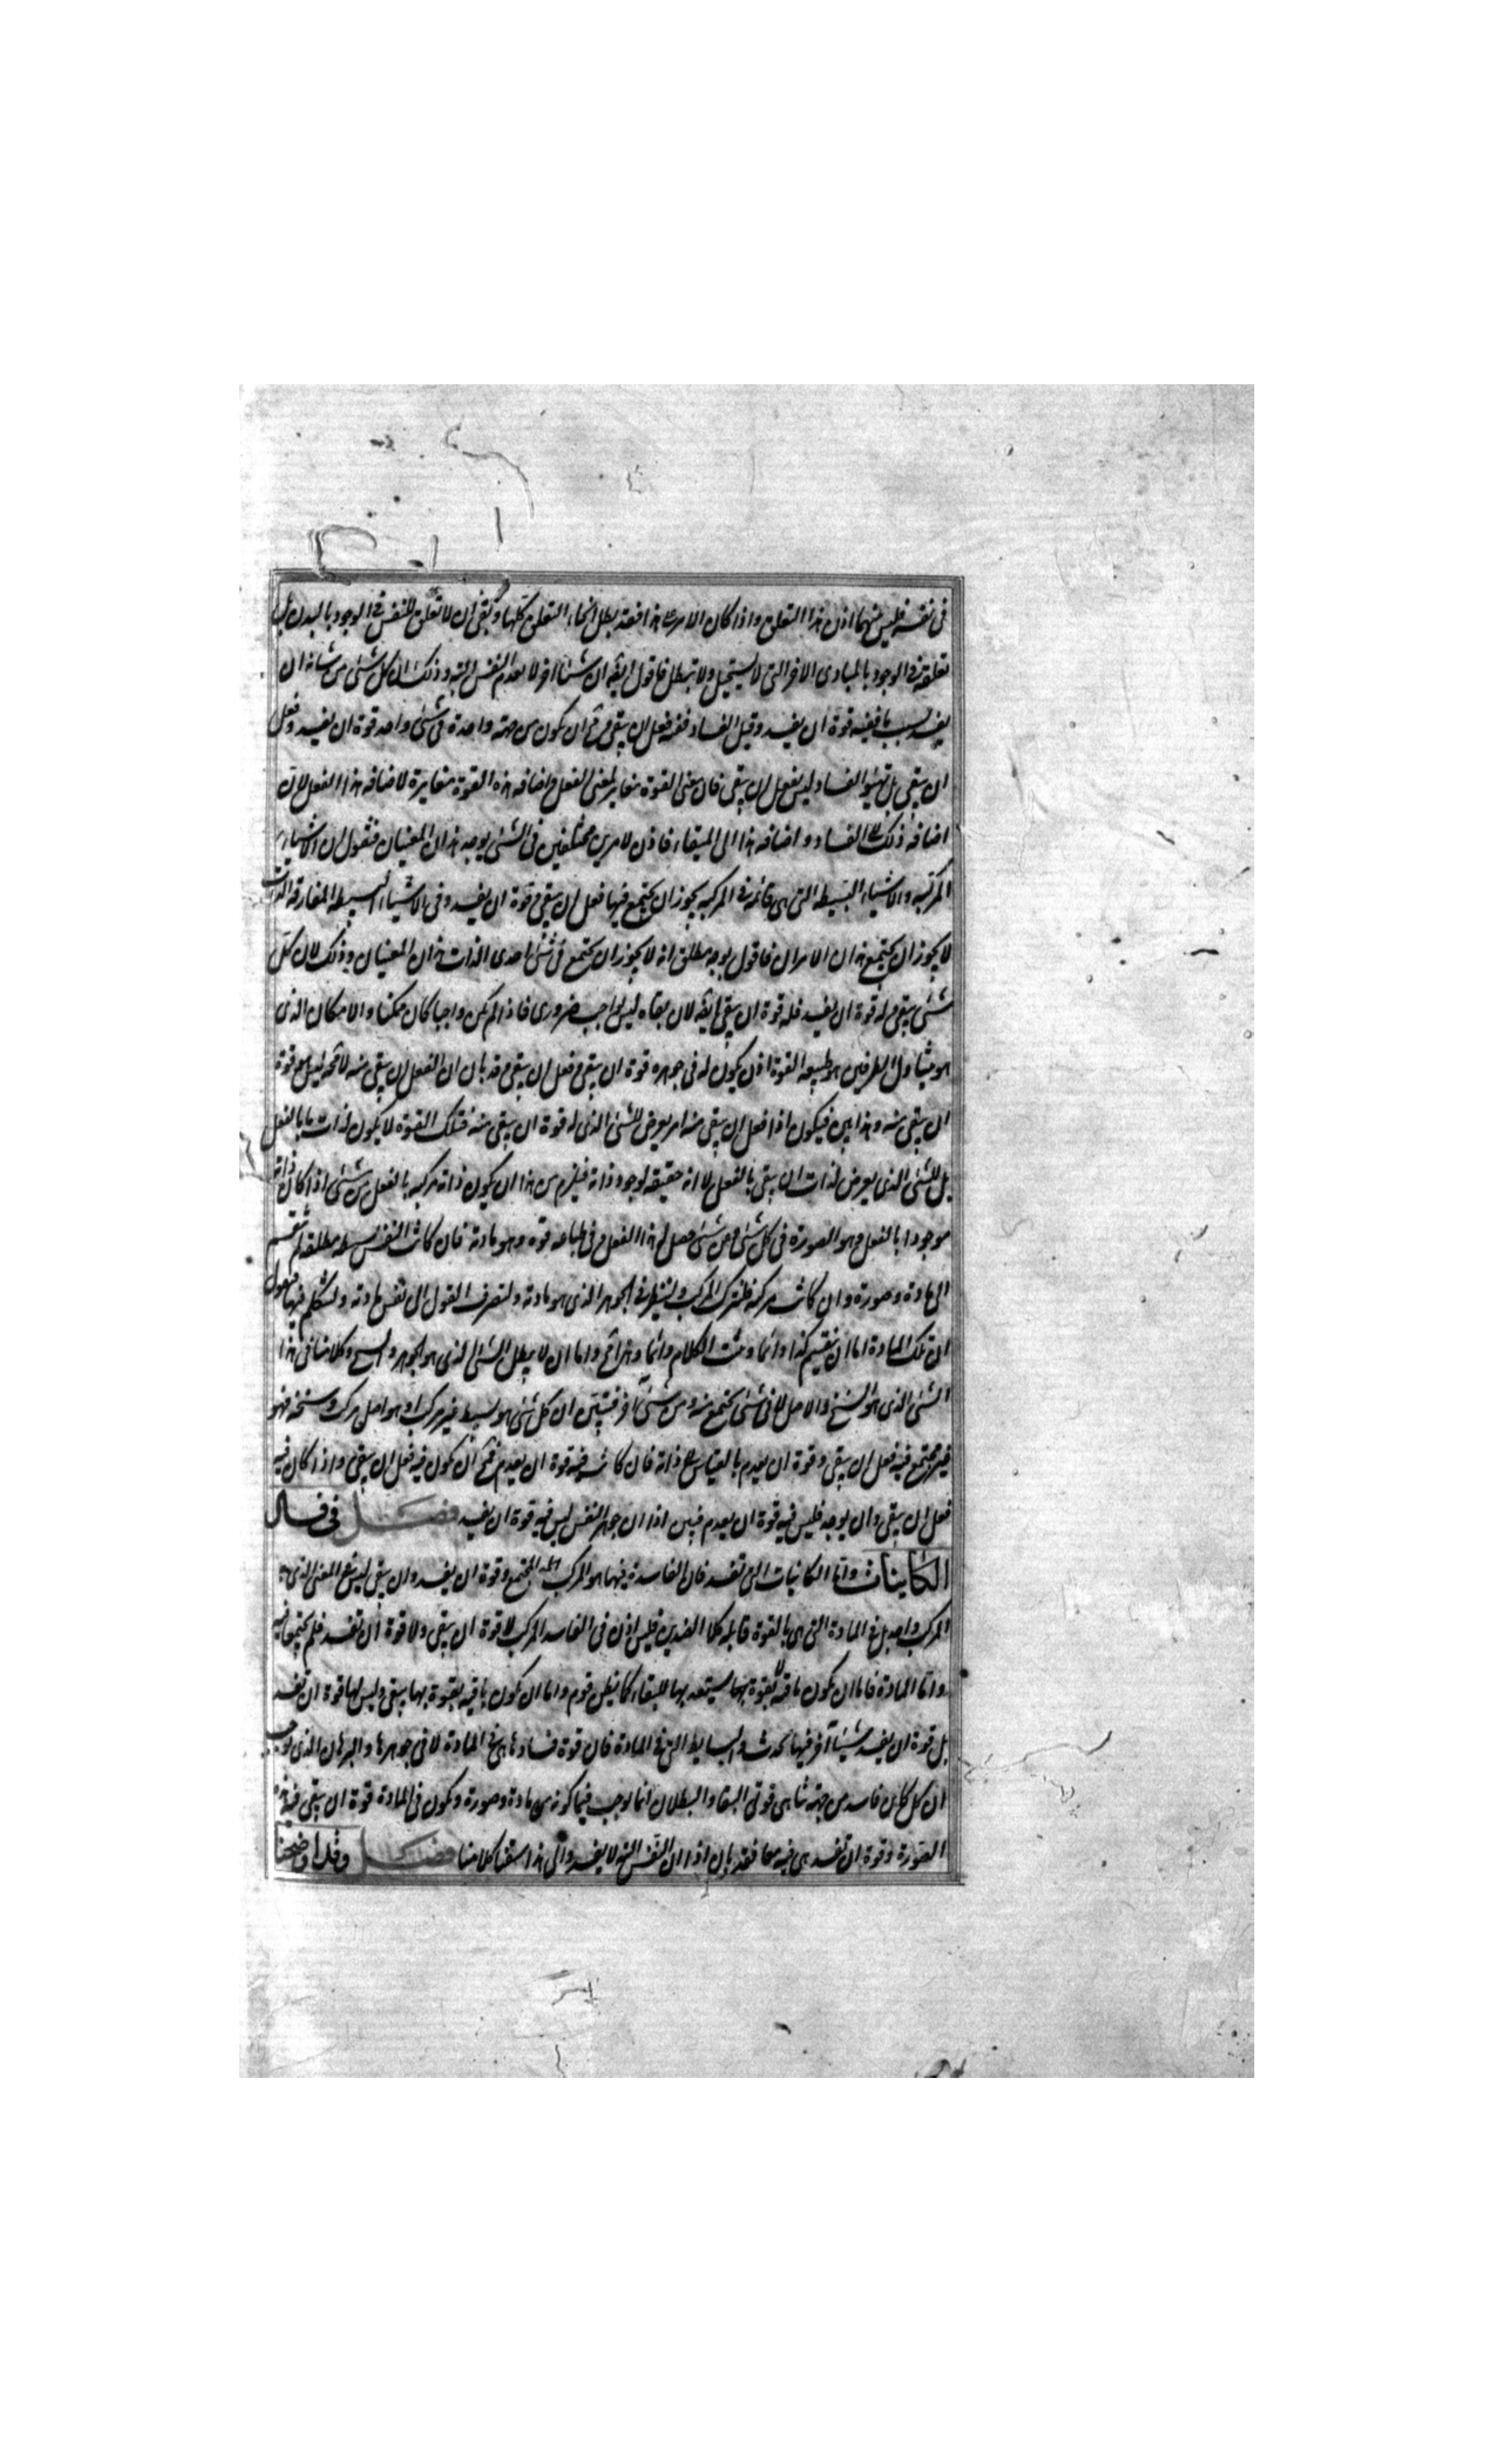 فى نفسه فليس بينهما اذن هذا التعلق واذا كان الامر على هذا فقد بطل انحاء التعلق كلها وبقى ان لا تعلق للنفس فى الوجود بالبدن بل
تعلقه فى الوجود بالمبادى الاخر التى لا يستحيل ولا تبطل فاقول ايضه ان شيئا اخر لا يعدم النفس البتة وذلك ان كل شئ من شانه ان
يفسد بسبب ما ففيه قوة ان يفسد وقبل الفساد ففيه فعل ان يبقى ومح ان يكون من جهة واحدة فى شئ واحد قوة ان يفسد وفعل
ان يبقى بل تهيئوه للفساد ليس بفعل ان يبقى فان معنى القوة مغاير لمعنى الفعل واضافه هذه القوة مغايرة لاضافه هذا الفعل لان
اضافه ذلك الى الفساد واضافه هذا الى البقاء فاذن لامرين مختلفين فى الشئ يوجد هذان المعنيان فنقول ان الاشياء
المركبه والاشياء البسيطه التى هى قائمه فى المركبه يجوز ان يجتمع فيها فعل ان يبقى وقوة ان يفسد وفى الاشياء البسيطه المفارقه الذات
لا يجوز ان يجتمع هذان الامران فاقول بوجه مطلق انه لا يجوز ان يجتمع فى شئ احدى الذات هذان المعنيان وذلك لان كل
شئ يبقى وله قوة ان يفسد فله قوة ان يبقى ايضه لان بقاه ليس بواجب ضرورى فاذا لم يكن واجبا كان ممكنا والامكان الذى
هو يتناول الطرفين هو طبيعه القوة اذن يكون له فى جوهره قوة ان يبقى وفعل ان يبقى وقد بان ان الفعل ان يبقى منه لا محه ليس هو قوة
ان يبقى منه وهذا بين فيكون اذا فعل ان يبقى منه امر يعرض للشئ الذى له قوة ان يبقى منه فتلك القوة لا يكون لذات ما بالفعل
بل للشئ الذى يعرض لذاته ان يبقى بالفعل لا انه حقيقه لوجود ذاته فيلزم من هذا ان يكون ذاته مركبه بالفعل من شئ اذا كان ذاته
موجودا بالفعل وهو الصورة فى كل شئ وعن شئ حصل له هذا الفعل وفى طباعه قوه وهو مادته فان كانت النفس بسيطه مطلقه لم تنقسم
الى مادة وصورة وان كانت مركبه فلنترك المركب ولننظر فى الجوهر الذى هو مادته ولنصرف القول الى نفس مادته ولنتكلم فيها فنقول
ان تلك المادة اما ان ينقسم كذا دائما ونثبت الكلام دائما وهذا مح واما ان لا يبطل الشئ الذى هو الجوهر والسنخ وكلامنا فى هذا
الشئ الذى هو السنخ والاصل لا فى شئ يجتمع منه ومن شئ اخر فتبين ان كل شئ هو بسيط غير مركب او هو اصل مركب وسنخه فهو
غير مجتمع فيه فعل ان يبقى وقوة ان يعدم بالقياس الى ذاته فان كانت فيه قوة ان يعدم فمح ان يكون فيه فعل ان يبقى واذا كان فيه
فعل ان يبقى وان يوجد فليس فيه قوة ان يعدم فبين اذا ان جوهر النفس ليس فيه قوة ان يفسد فصل فى فساد
الكاينات واما الكاينات التى تفسد فان الفاسد منها هو المركب المجتمع وقوة ان يفسد وان يبقى ليس فى المعنى الذى به
المركب واحد بل فى المادة التى هى بالقوة قابله كلا الضدين فليس اذن فى الفاسد المركب لا قوة ان يبقى ولا قوة ان تفسد فلم يجتمعا فيه
واما المادة فاما ان يكون باقيه لا بقوة بها يستعد بها للبقاء كما يظن قوم واما ان يكون باقيه بقوة بها يبقى وليس لها قوة ان تفسد
بل قوة ان يفسد شيئا آخر فيها يحدث والبسايط التى فى المادة فان قوة فسادها هى فى المادة لا فى جوهرها والبرهان الذى يوجب
ان كل كاين فاسد من جهة تناهى قوتى البقا والبطلان انما يوجب فيما كونه من مادة وصورة ويكون فى المادة قوة ان يبقى فيه هذه
الصورة وقوة ان تفسد هى فيه معا فقد بان اذا ان النفس البته لا يفسد والى هذا سقنا كلامنا فصل وقد اوضحنا